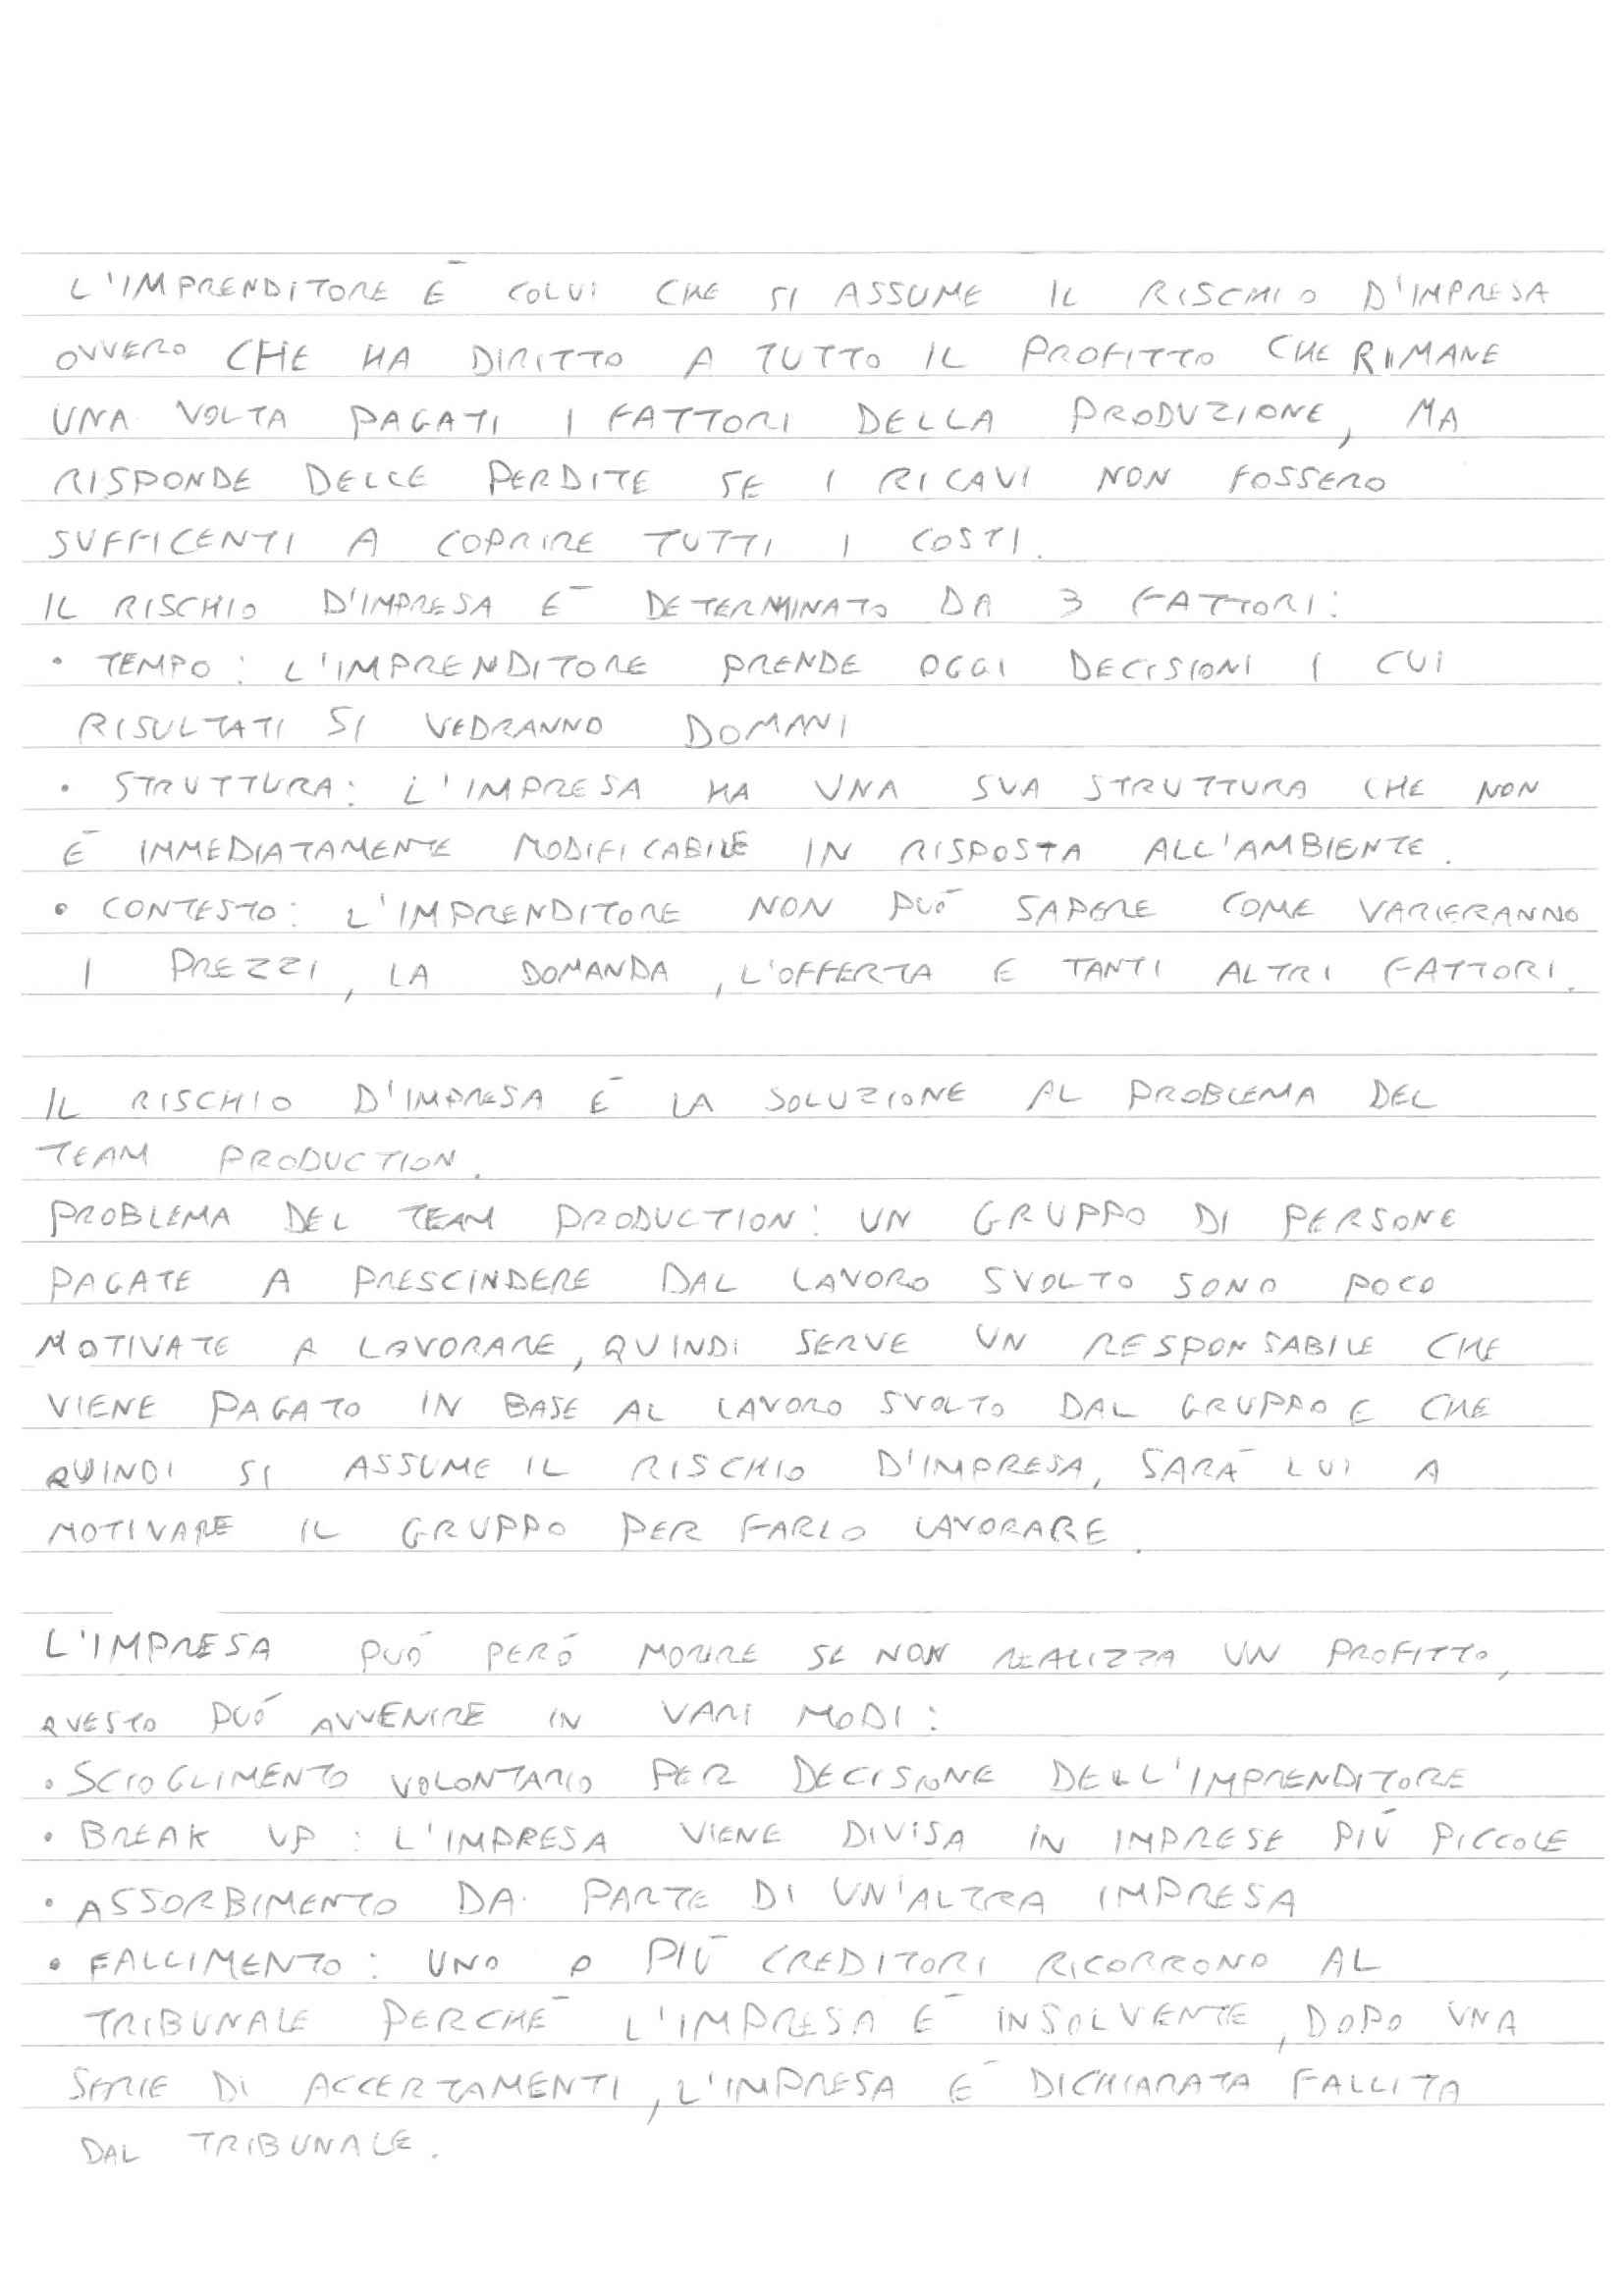 L'IMPRENDITORE È COLUI CHE SI ASSUME IL RISCHIO D'IMPRESA
OVVERO CHE HA DIRITTO A TUTTO IL PROFITTO CHE RIMANE
UNA VOLTA PAGATI I FATTORI DELLA PRODUZIONE, MA
RISPONDE DELLE PERDITE SE I RICAVI NON FOSSERO
SUFFICENTI A COPRIRE TUTTI I COSTI.
IL RISCHIO D'IMPRESA È DETERMINATO DA 3 FATTORI:
• TEMPO: L'IMPRENDITORE PRENDE OGGI DECISIONI I CUI
RISULTATI SI VEDRANNO DOMANI
• STRUTTURA: L'IMPRESA HA UNA SUA STRUTTURA CHE NON
È IMMEDIATAMENTE MODIFICABILE IN RISPOSTA ALL'AMBIENTE.
• CONTESTO: L'IMPRENDITORE NON PUÒ SAPERE COME VARIERANNO
I PREZZI, LA DOMANDA, L'OFFERTA E TANTI ALTRI FATTORI.
IL RISCHIO D'IMPRESA È LA SOLUZIONE AL PROBLEMA DEL
TEAM PRODUCTION.
PROBLEMA DEL TEAM PRODUCTION: UN GRUPPO DI PERSONE
PAGATE A PRESCINDERE DAL LAVORO SVOLTO SONO POCO
MOTIVATE A LAVORARE, QUINDI SERVE UN RESPONSABILE CHE
VIENE PAGATO IN BASE AL LAVORO SVOLTO DAL GRUPPO E CHE
QUINDI SI ASSUME IL RISCHIO D'IMPRESA, SARÀ LUI A
MOTIVARE IL GRUPPO PER FARLO LAVORARE.
L'IMPRESA PUÒ PERÒ MORIRE SE NON REALIZZA UN PROFITTO,
QUESTO PUÒ AVVENIRE IN VARI MODI:
• SCIOGLIMENTO VOLONTARIO PER DECISIONE DELL'IMPRENDITORE
• BREAK UP: L'IMPRESA VIENE DIVISA IN IMPRESE PIÙ PICCOLE
• ASSORBIMENTO DA PARTE DI UN'ALTRA IMPRESA
• FALLIMENTO: UNO O PIÙ CREDITORI RICORRONO AL
TRIBUNALE PERCHÈ L'IMPRESA È INSOLVENTE, DOPO UNA
SERIE DI ACCERTAMENTI, L'IMPRESA È DICHIARATA FALLITA
DAL TRIBUNALE.